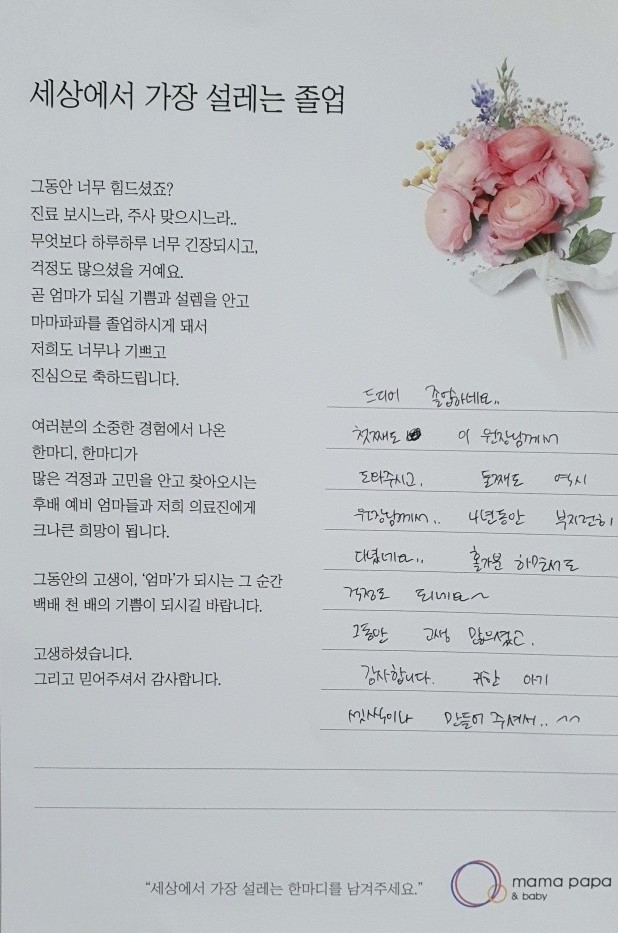 세상에서 가장 설레는 졸업
그동안 너무 힘드셨죠?
진료 보시느라, 주사 맞으시느라..
무엇보다 하루하루 너무 긴장되시고,
걱정도 많으셨을 거예요.
곧 엄마가 되실 기쁨과 설렘을 안고
마마파파를 졸업하시게 돼서
저희도 너무나 기쁘고
진심으로 축하드립니다.
여러분의 소중한 경험에서 나온
한마디, 한마디가
많은 걱정과 고민을 안고 찾아오시는
후배 예비 엄마들과 저희 의료진에게
크나큰 희망이 됩니다.
그동안의 고생이, '엄마'가 되시는 그 순간
백배 천 배의 기쁨이 되시길 바랍니다.
고생하셨습니다.
그리고 믿어주셔서 감사합니다.
드디어 졸업하네요..
첫째도 이 원장님께서
도와주시고, 둘째도 역시
원장님께서.. 4년동안 부지런히
다녔네요.. 홀가분 하면서도
걱정도 되네요~
그동안 고생 많으셨고.
감사합니다. 귀한 아기
셋씩이나 만들어 주셔서.. ^^
"세상에서 가장 설레는 한마디를 남겨주세요."
mama papa
& baby